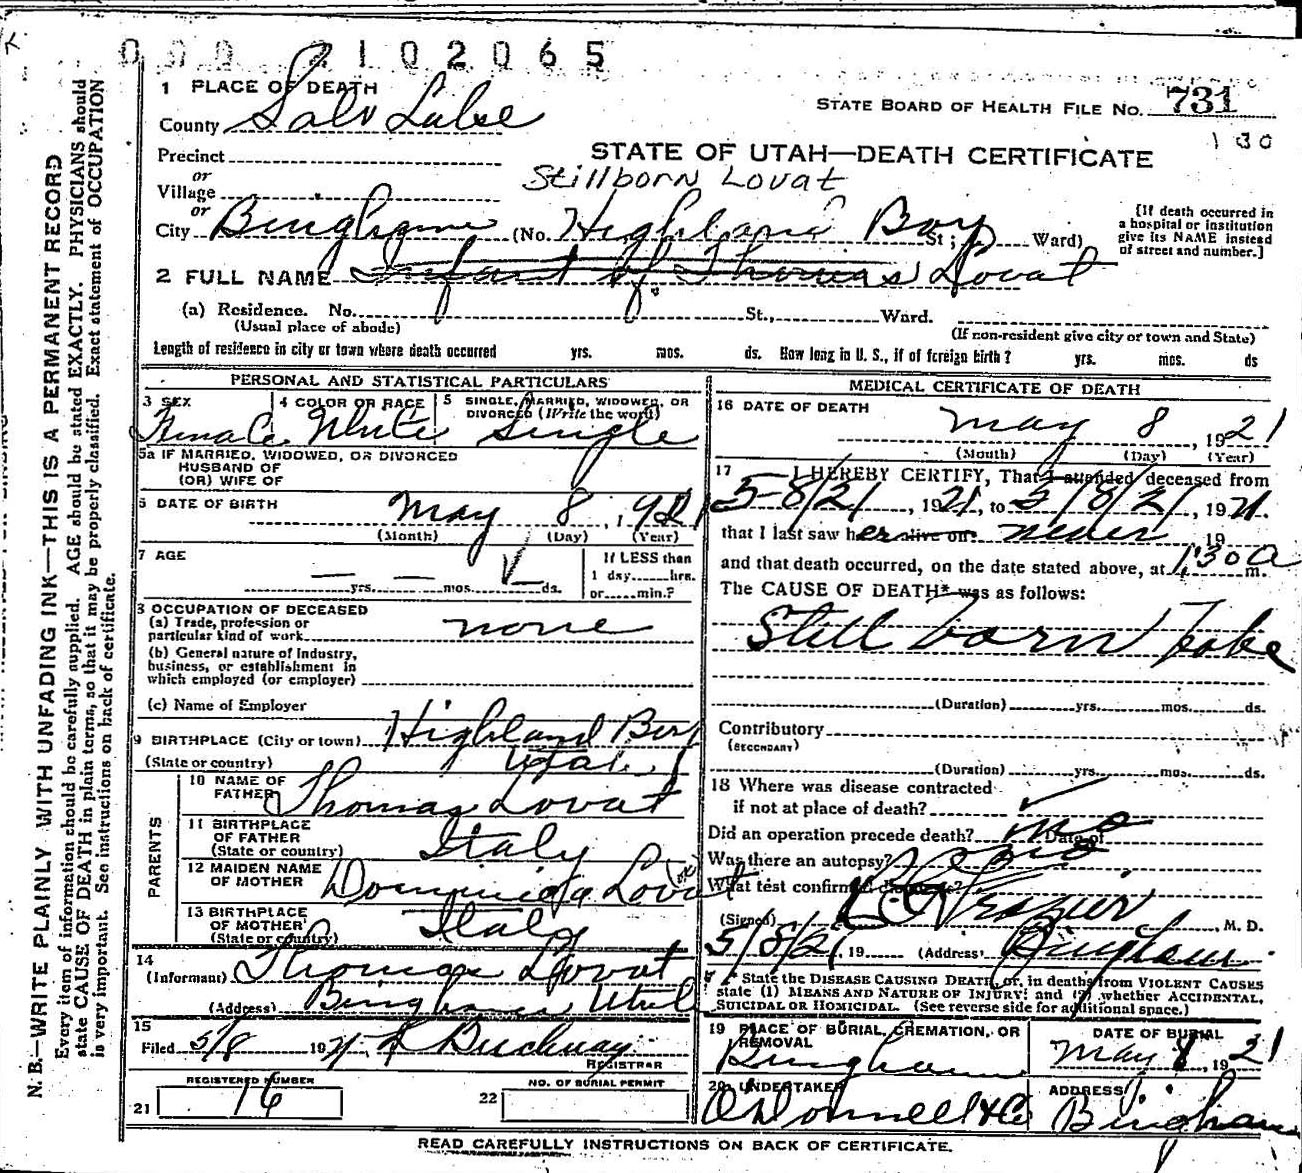 000 2102065
1 PLACE OF DEATH
County Salt Lake
STATE BOARD OF HEALTH FILE No. 731
130
Precinct
or
Village
STATE OF UTAH—DEATH CERTIFICATE
Stillborn Lovat
or
City Bingham (No. Highland Boy St; Ward)
[If death occurred in
a hospital or institution
give its NAME instead
of street and number.]
2 FULL NAME Infant of Thomas Lovat
(a) Residence. No. St., Ward.
(Usual place of abode) (If non-resident give city or town and State)
Length of residence in city or town where death occurred yrs. mos. ds. How long in U. S., if of foreign birth? yrs. mos. ds
PERSONAL AND STATISTICAL PARTICULARS
3 SEX 4 COLOR OR RACE 5 SINGLE, MARRIED, WIDOWED, OR
DIVORCED (Write the word)
Female White Single
5a IF MARRIED, WIDOWED, OR DIVORCED
HUSBAND OF
(OR) WIFE OF
6 DATE OF BIRTH May 8, 1921
(Month) (Day) (Year)
7 AGE If LESS than
1 day hrs.
— yrs. — mos. ds. or min.?
8 OCCUPATION OF DECEASED
(a) Trade, profession or
particular kind of work none
(b) General nature of Industry,
business, or establishment in
which employed (or employer)
(c) Name of Employer
9 BIRTHPLACE (City or town) Highland Boy
(State or country) Utah
PARENTS
10 NAME OF
FATHER Thomas Lovat
11 BIRTHPLACE
OF FATHER
(State or country) Italy
12 MAIDEN NAME
OF MOTHER Dominida Lovat
13 BIRTHPLACE
OF MOTHER
(State or country) Italy
14
(Informant) Thomas Lovat
(Address) Bingham Utah
15
Filed 5/8 1921
REGISTRAR
REGISTERED NUMBER NO. OF BURIAL PERMIT
21 16 22
MEDICAL CERTIFICATE OF DEATH
16 DATE OF DEATH
May 8, 1921
(Month) (Day) (Year)
17 I HEREBY CERTIFY, That I attended deceased from
5-8/21, 1921, to 5/8/21, 1921.
that I last saw her alive on never 19
and that death occurred, on the date stated above, at 1:30 a m.
The CAUSE OF DEATH* was as follows:
Still born
(Duration) yrs. mos. ds.
Contributory
(SECONDARY)
(Duration) yrs. mos. ds.
18 Where was disease contracted
if not at place of death?
Did an operation precede death? no Date of
Was there an autopsy? no
What test confirmed diagnosis?
(Signed) , M. D.
5/8/21, 19 (Address) Bingham
* State the DISEASE CAUSING DEATH, or, in deaths from VIOLENT CAUSES
state (1) MEANS AND NATURE OF INJURY; and (2) whether ACCIDENTAL,
SUICIDAL OR HOMICIDAL. (See reverse side for additional space.)
19 PLACE OF BURIAL, CREMATION, OR
REMOVAL DATE OF BURIAL
Bingham May 8, 1921
20 UNDERTAKER ADDRESS
O'Donnell & Co Bingham
READ CAREFULLY INSTRUCTIONS ON BACK OF CERTIFICATE.
N. B.—WRITE PLAINLY WITH UNFADING INK—THIS IS A PERMANENT RECORD
Every item of information should be carefully supplied. AGE should be stated EXACTLY. PHYSICIANS should
state CAUSE OF DEATH in plain terms, so that it may be properly classified. Exact statement of OCCUPATION
is very important. See instructions on back of certificate.